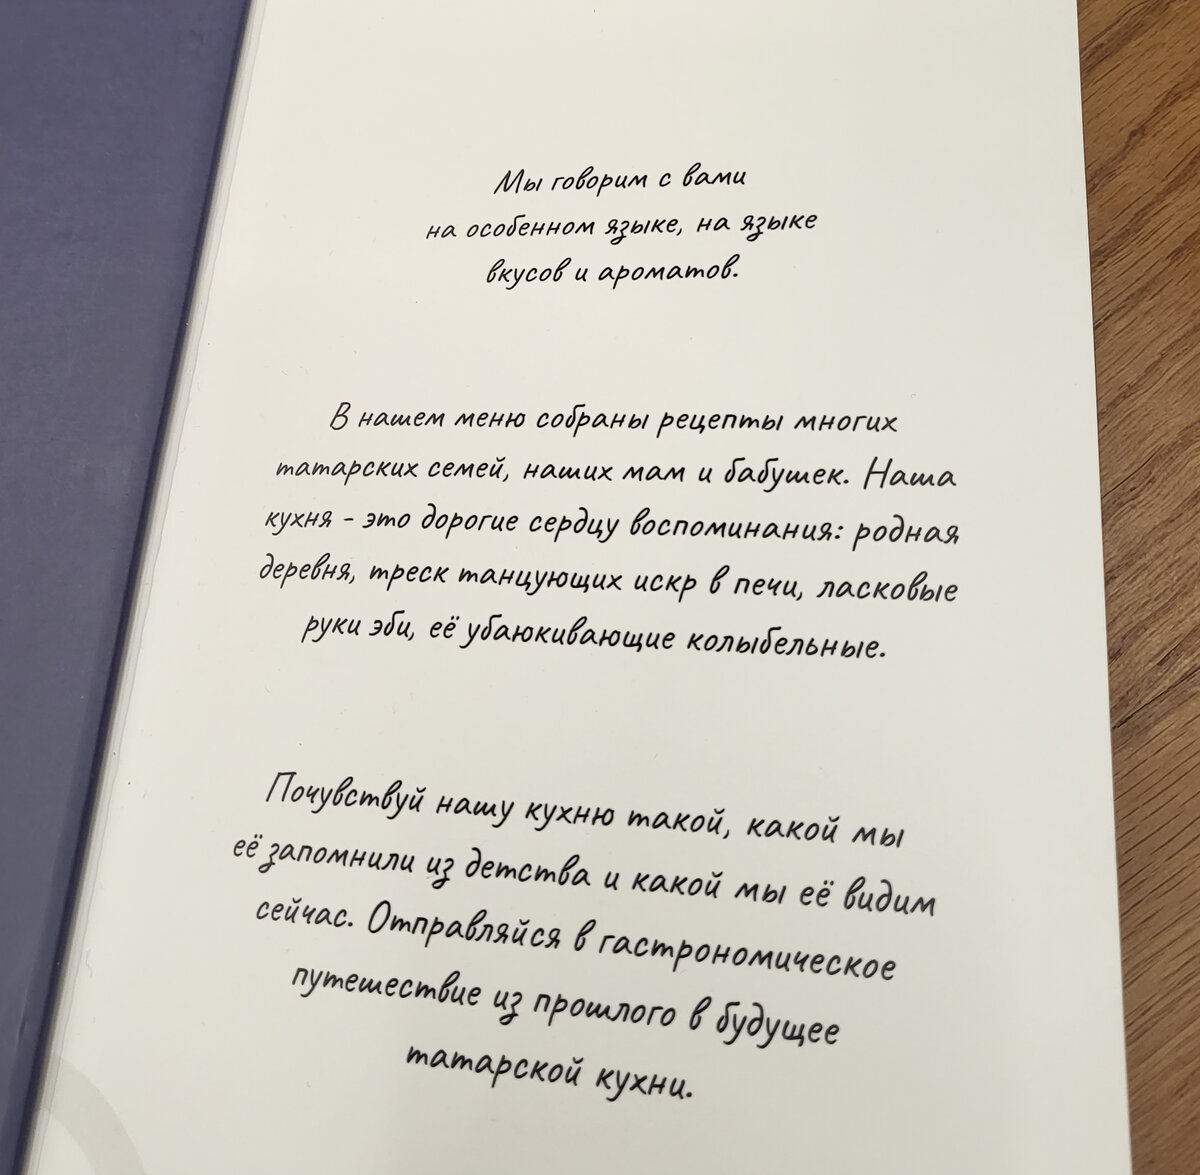 Мы говорим с вами
на особенном языке, на языке
вкусов и ароматов.
В нашем меню собраны рецепты многих
татарских семей, наших мам и бабушек. Наша
кухня - это дорогие сердцу воспоминания: родная
деревня, треск танцующих искр в печи, ласковые
руки эби, её убаюкивающие колыбельные.
Почувствуй нашу кухню такой, какой мы
её запомнили из детства и какой мы её видим
сейчас. Отправляйся в гастрономическое
путешествие из прошлого в будущее
татарской кухни.